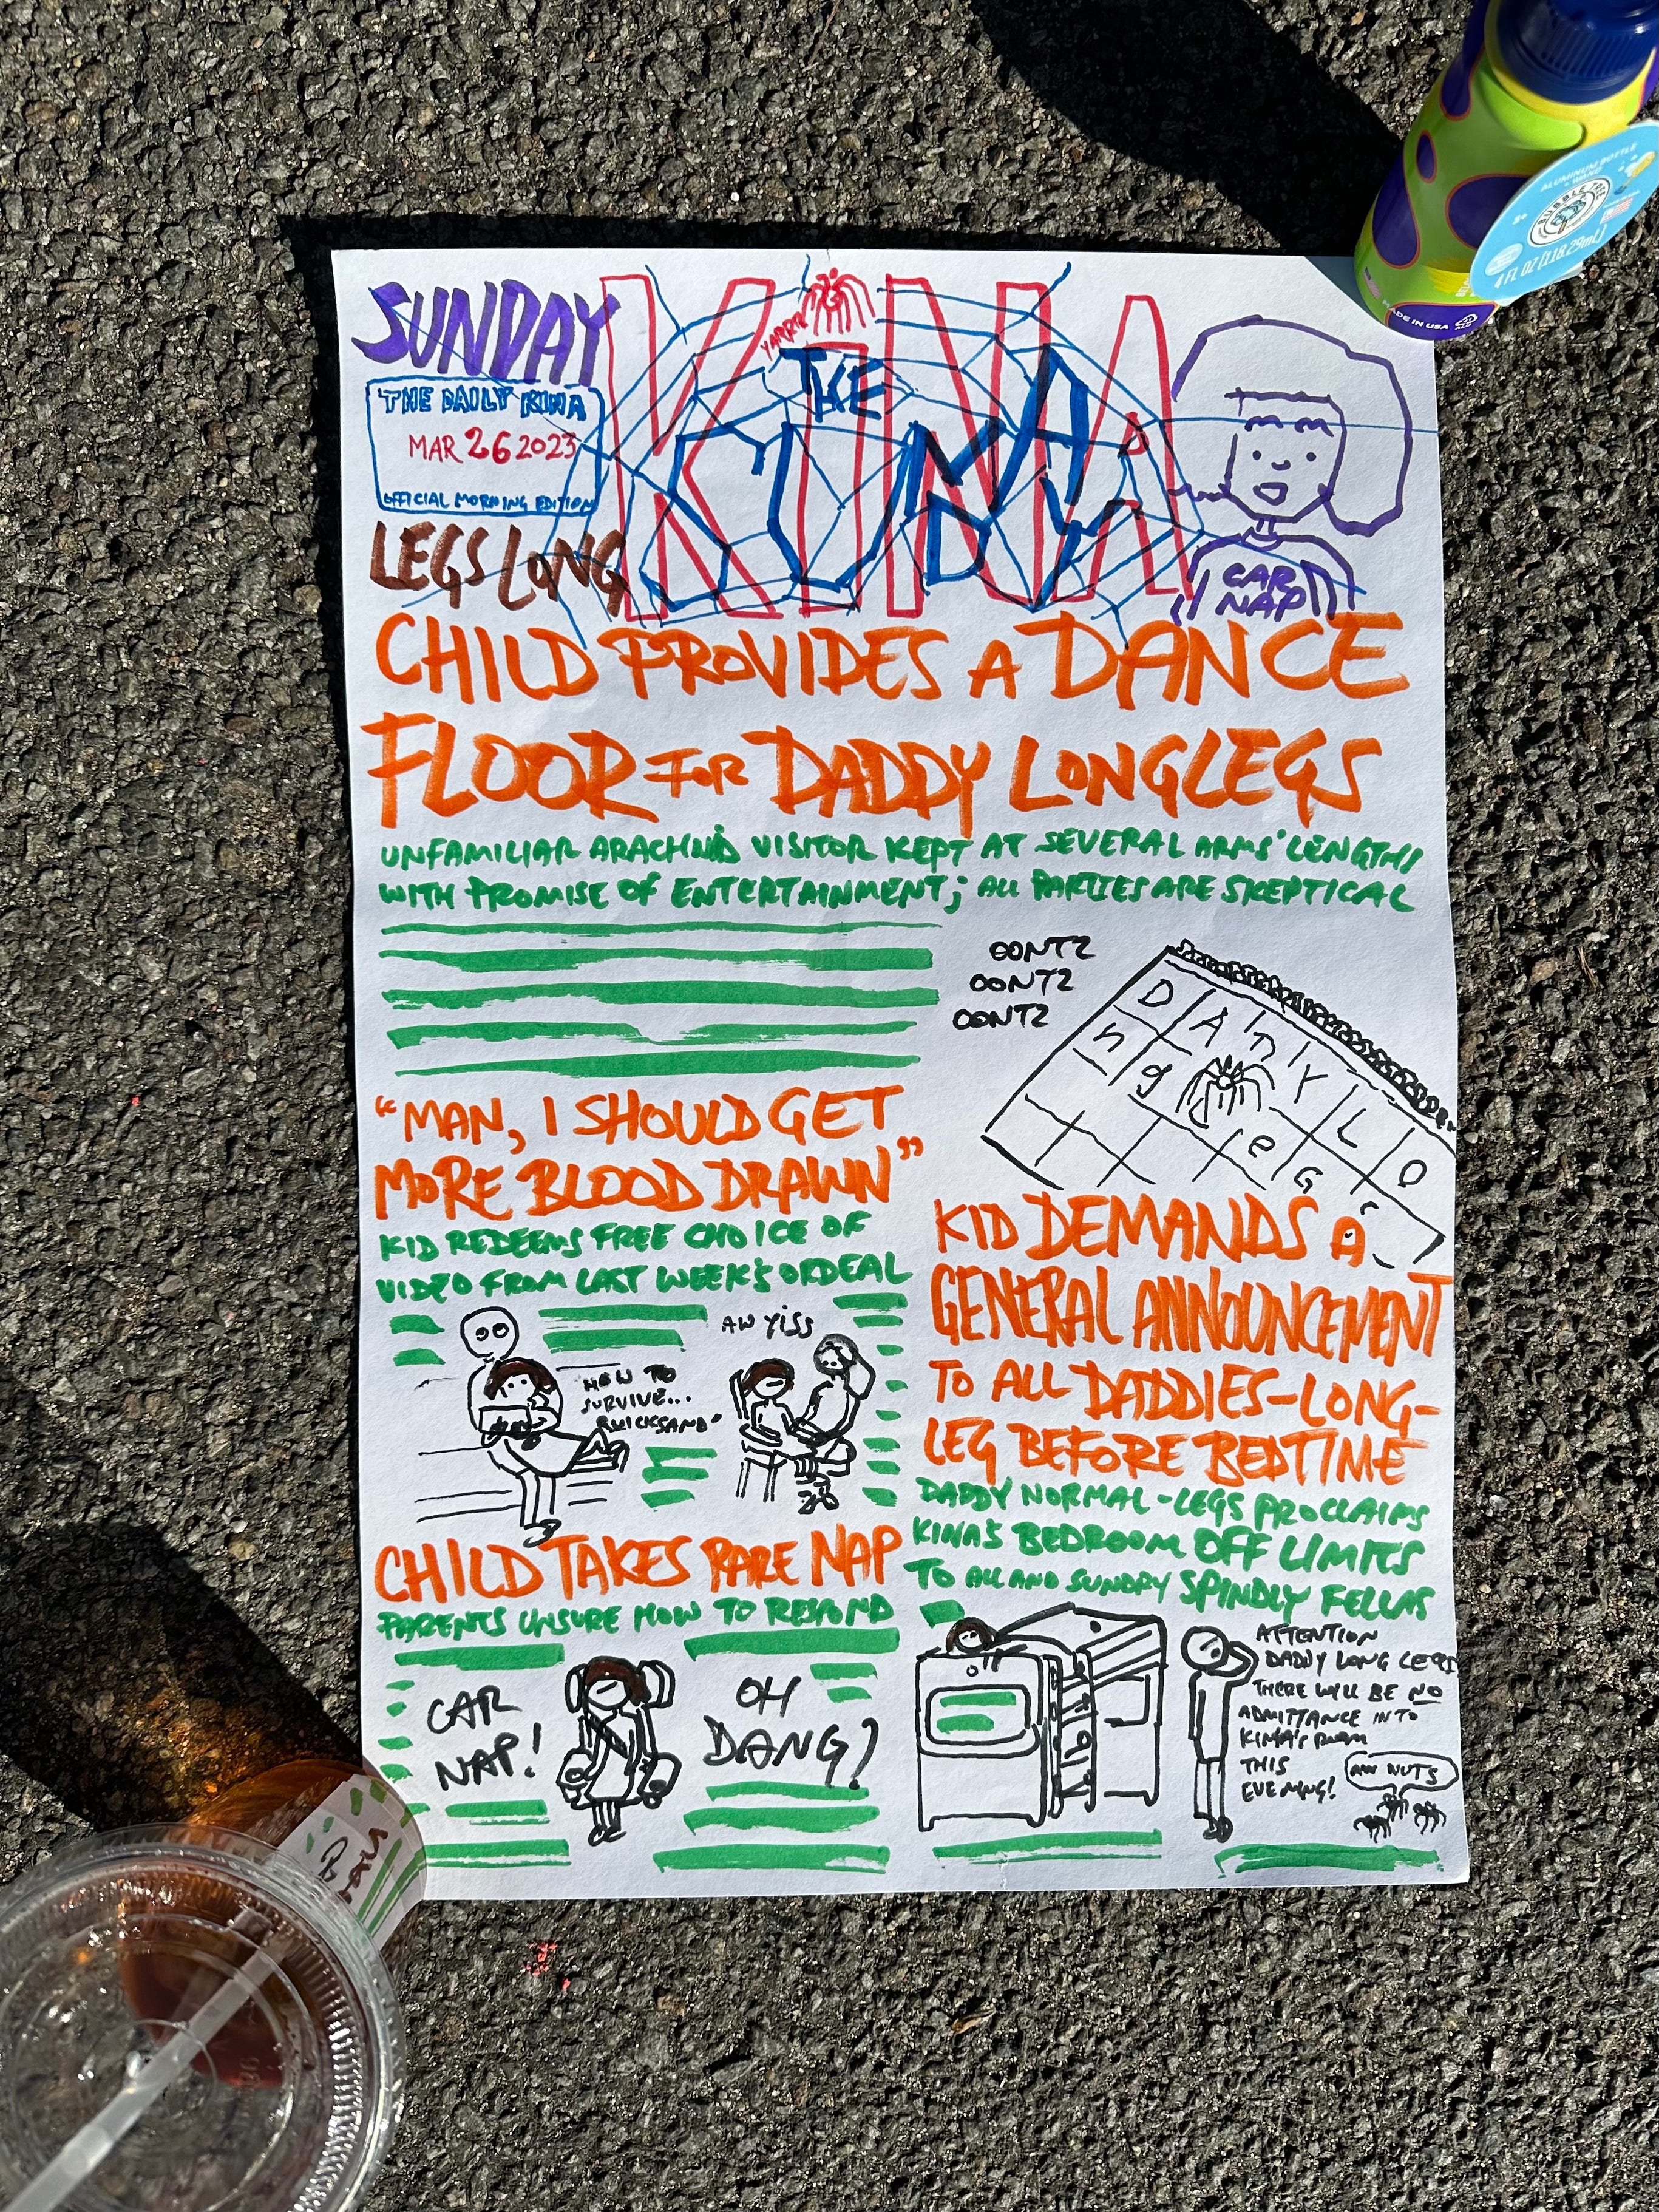 SUNDAY
THE DAILY KINA
MAR 26 2023
OFFICIAL MORNING EDITION
LEGS LONG
KINA
YARRR
THE
KINA
CAR
NAP
CHILD PROVIDES A DANCE
FLOOR FOR DADDY LONGLEGS
UNFAMILIAR ARACHNID VISITOR KEPT AT SEVERAL ARMS' LENGTHS
WITH PROMISE OF ENTERTAINMENT; ALL PARTIES ARE SKEPTICAL
OONTZ
OONTZ
OONTZ
D A n Y L O
n g L e G S
"MAN, I SHOULD GET
MORE BLOOD DRAWN"
KID REDEEMS FREE CHOICE OF
VIDEO FROM LAST WEEK'S ORDEAL
"HOW TO
SURVIVE...
QUICKSAND"
AW YISS
CHILD TAKES RARE NAP
PARENTS UNSURE HOW TO RESPOND
CAR
NAP!
OH
DANG?
KID DEMANDS A
GENERAL ANNOUNCEMENT
TO ALL DADDIES-LONG-
LEG BEFORE BEDTIME
DADDY NORMAL-LEGS PROCLAIMS
KINA'S BEDROOM OFF LIMITS
TO ALL AND SUNDRY SPINDLY FELLAS
ATTENTION
DADDY LONG LEGS
THERE WILL BE NO
ADMITTANCE INTO
KINA'S ROOM
THIS
EVENING!
AW NUTS
ALUMINUM BOTTLE
+ WAND
3+
4 FL OZ (118.29mL)
MADE IN USA